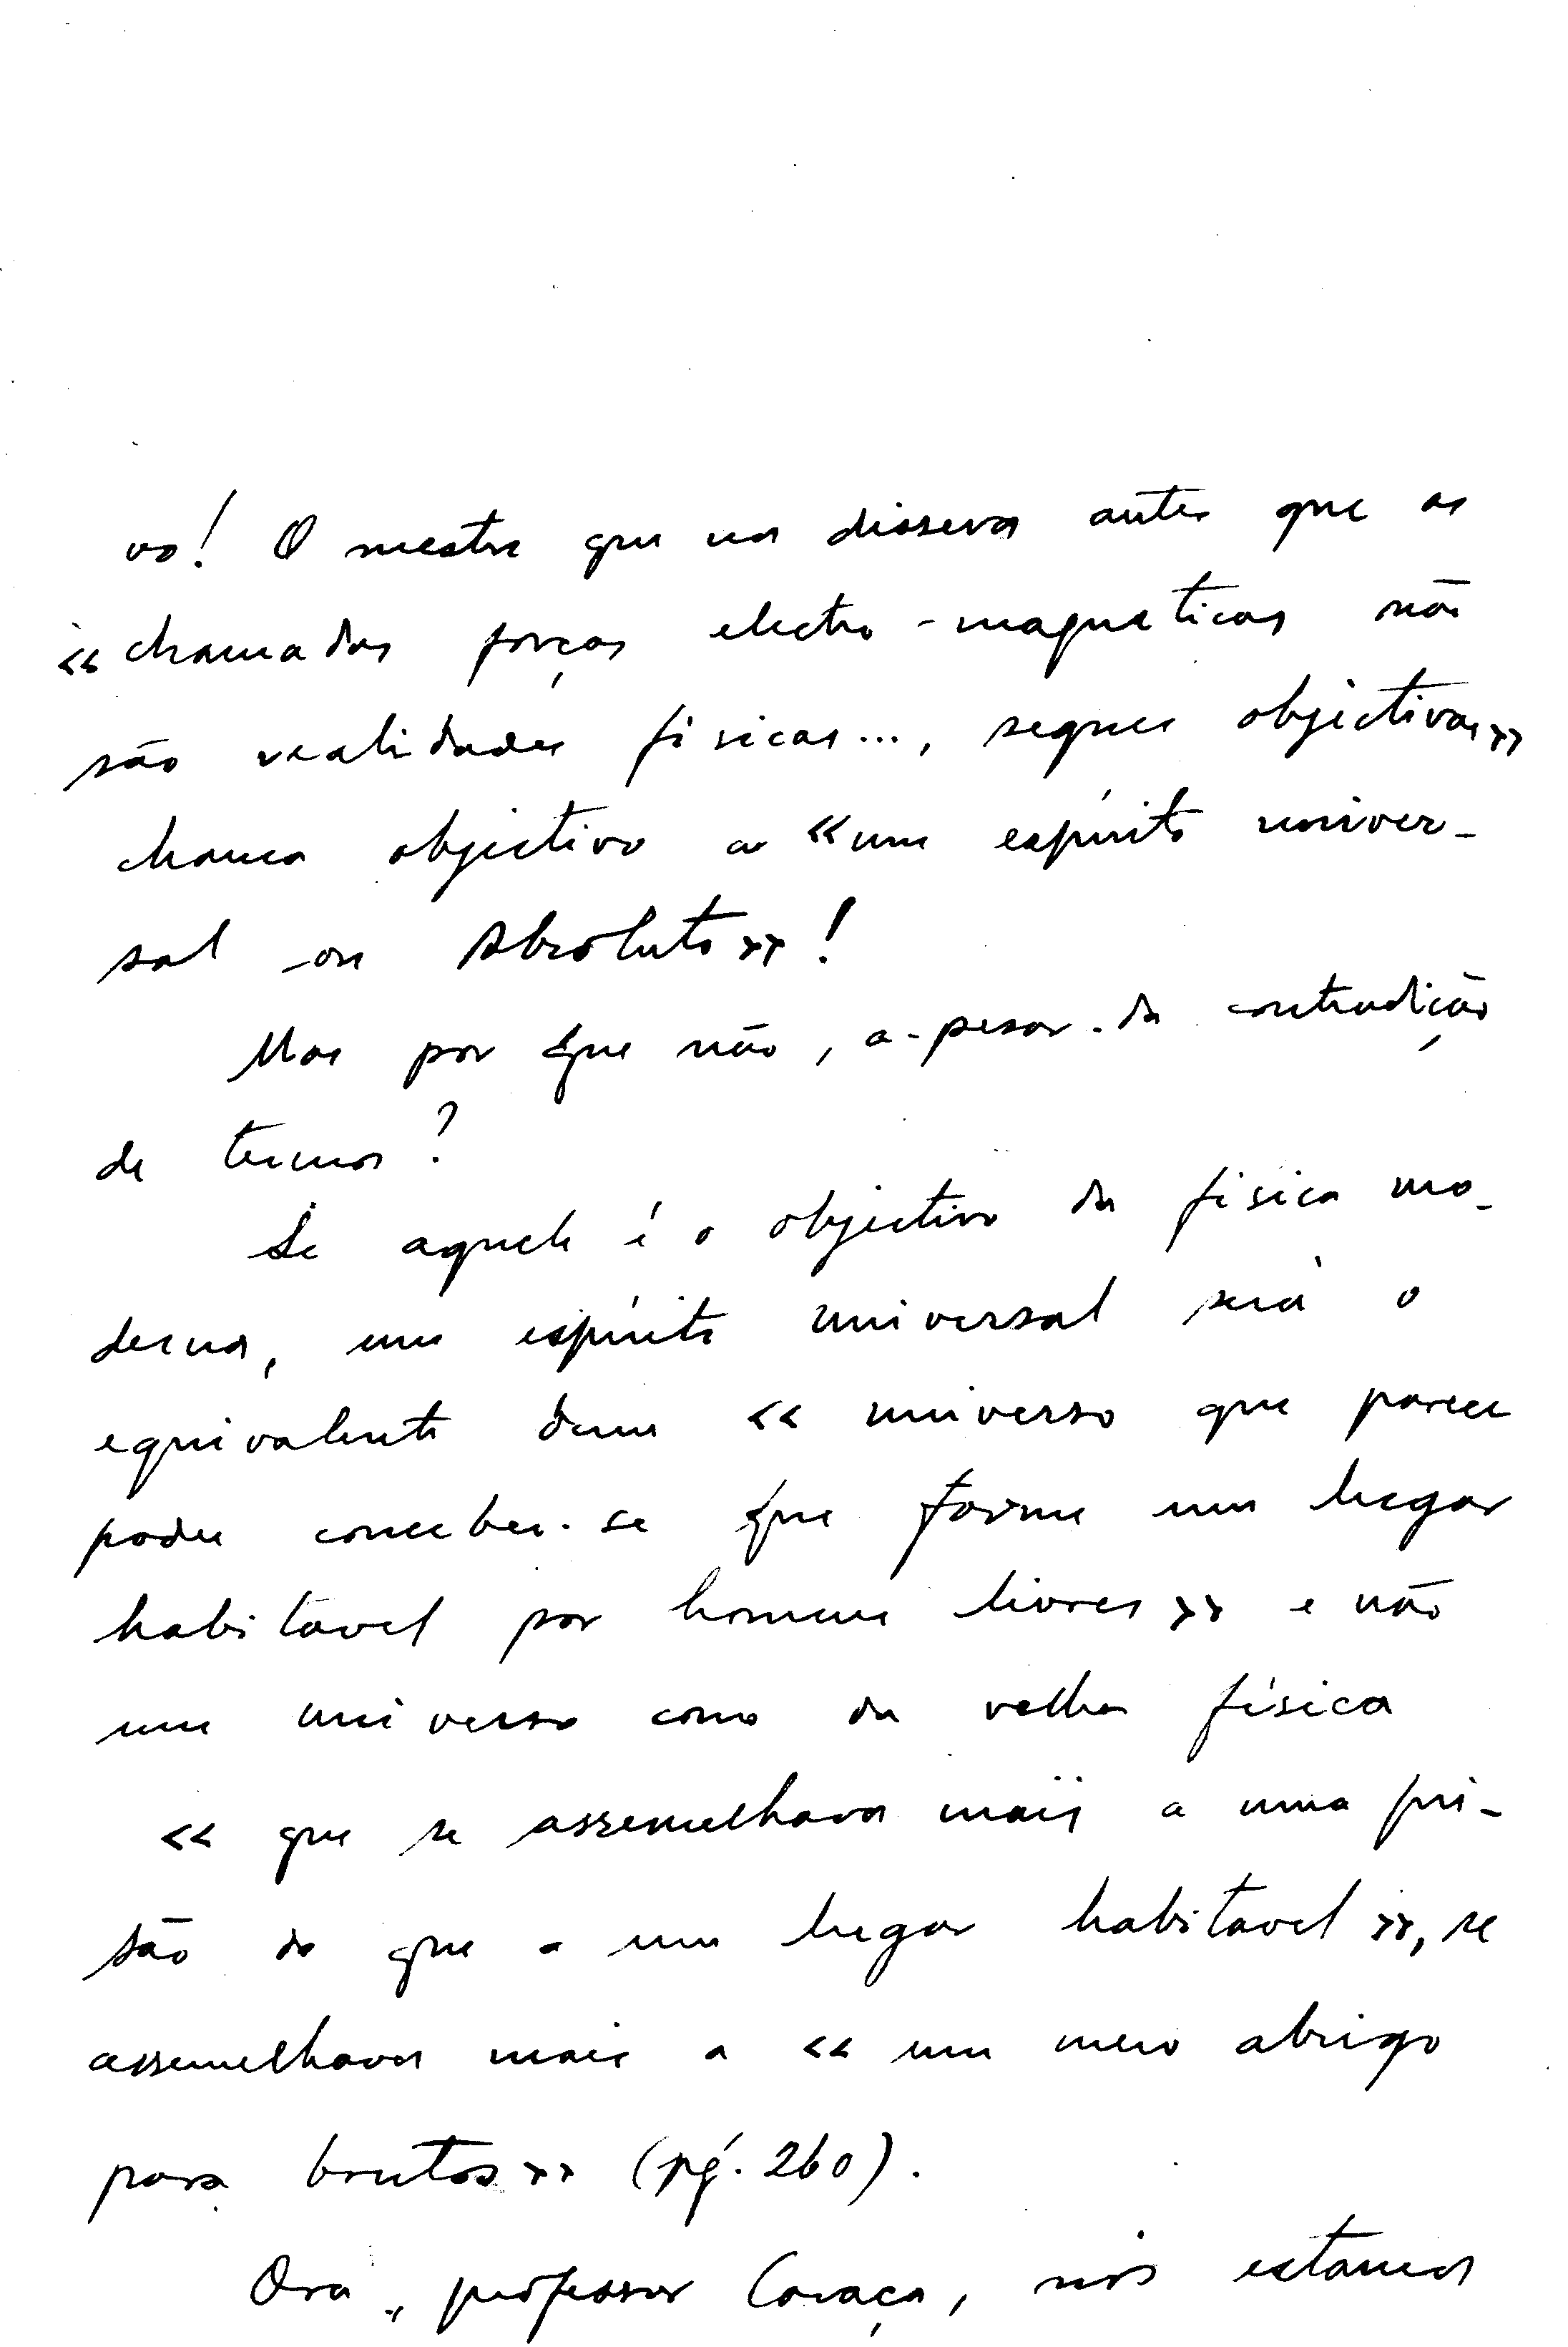 vo! O mestre que nos dissera antes que as
«chamadas forças electro-magneticas não
são realidades fisicas..., sequer objectivas»
chama objectivo a «um espírito univer-
sal ou Absoluto»!
Mas por que não, a-pesar-da contradição
de termos?
Se aquele é o objectivo da fisica mo-
derna, um espírito universal será o
equivalente dum «universo que parece
poder conceber-se que forme um lugar
habitavel por homens livres» e não
um universo como da velha física
«que se assemelhava mais a uma pri-
são do que a um lugar habitavel», se
assemelhava mais a «um mero abrigo
para brutos» (pg. 260).
Ora, professor Caraça, nós estamos